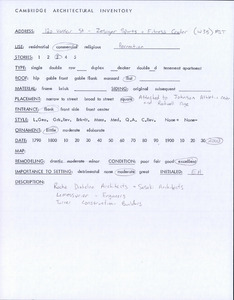 CAMBRIDGE ARCHITECTURAL INVENTORY
ADDRESS: 120 Vassar St - Zesiger Sports + Fitness Center (W35) MIT
USE: residential commercial religious Recreation
STORIES: 1 2 3 4 5
TYPE: single double row duplex double d tenement apartment
ROOF: hip gable front gable flank mansard flat
MATERIAL: frame brick SIDING: original subsequent
PLACEMENT: narrow to street broad to street square Attached to Johnson Athletic Center
and Rockwell Cage
ENTRANCE: front side front corner
ORNAMENT: little moderate elaborate
DATE: 1790 1800 10 20 30 40 50 60 70 80 90 1900 10 20 30 2002
MAP:
REMODELING: drastic moderate minor CONDITION: poor fair good excellent
IMPORTANCE TO SETTING: detrimental none moderate great INITIALED: EH
DESCRIPTION:
Roche Dinkeloo Architects - Sasaki Architects
Engineers
Turner Construction Builders